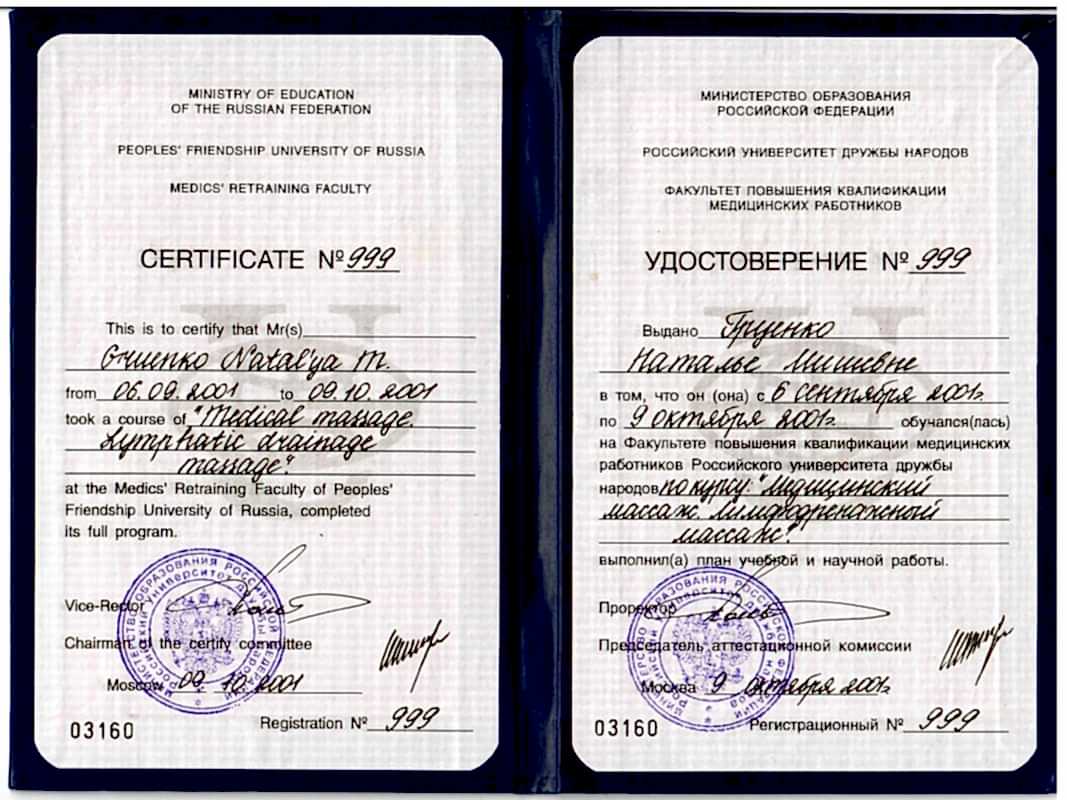 MINISTRY OF EDUCATION
OF THE RUSSIAN FEDERATION
PEOPLES' FRIENDSHIP UNIVERSITY OF RUSSIA
MEDICS' RETRAINING FACULTY
CERTIFICATE № 999
This is to certify that Mr(s)
Natal'ya M.
from 06.09.2001 to 09.10.2001
took a course of "Medical massage.
Lymphatic drainage
massage".
at the Medics' Retraining Faculty of Peoples'
Friendship University of Russia, completed
its full program.
Vice-Rector
Chairman of the certify committee
Moscow 09.10.2001
Registration № 999
03160
МИНИСТЕРСТВО ОБРАЗОВАНИЯ
РОССИЙСКОЙ ФЕДЕРАЦИИ
РОССИЙСКИЙ УНИВЕРСИТЕТ ДРУЖБЫ НАРОДОВ
ФАКУЛЬТЕТ ПОВЫШЕНИЯ КВАЛИФИКАЦИИ
МЕДИЦИНСКИХ РАБОТНИКОВ
УДОСТОВЕРЕНИЕ № 999
Выдано Гриценко
Наталье
в том, что он (она) с 6 сентября 2001г.
по 9 октября 2001г. обучался(лась)
на Факультете повышения квалификации медицинских
работников Российского университета дружбы
народов по курсу: "Медицинский
массаж. Лимфодренажный
массаж".
выполнил(а) план учебной и научной работы.
Проректор
Председатель аттестационной комиссии
Москва 9 октября 2001г.
Регистрационный № 999
03160